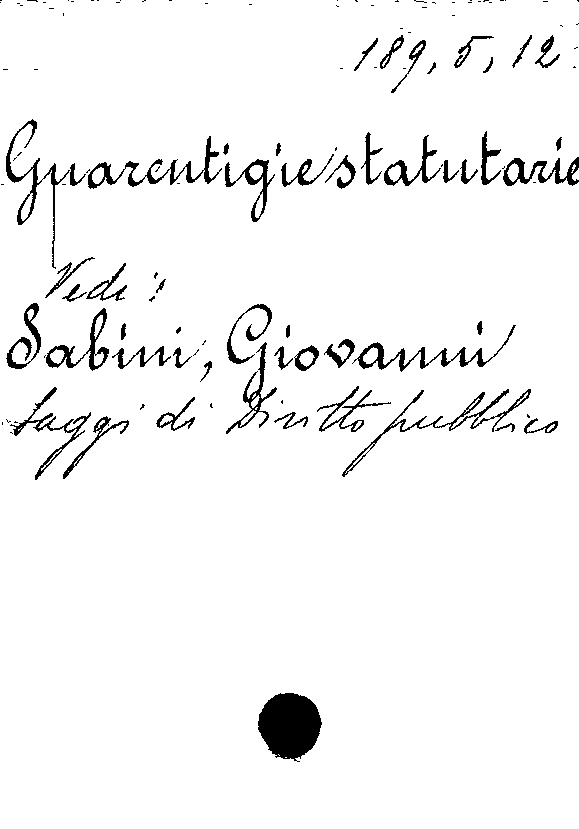 189, 5, 12
Guarentigie statutarie
Vedi:
Sabini, Giovanni
Saggi di Diritto pubblico